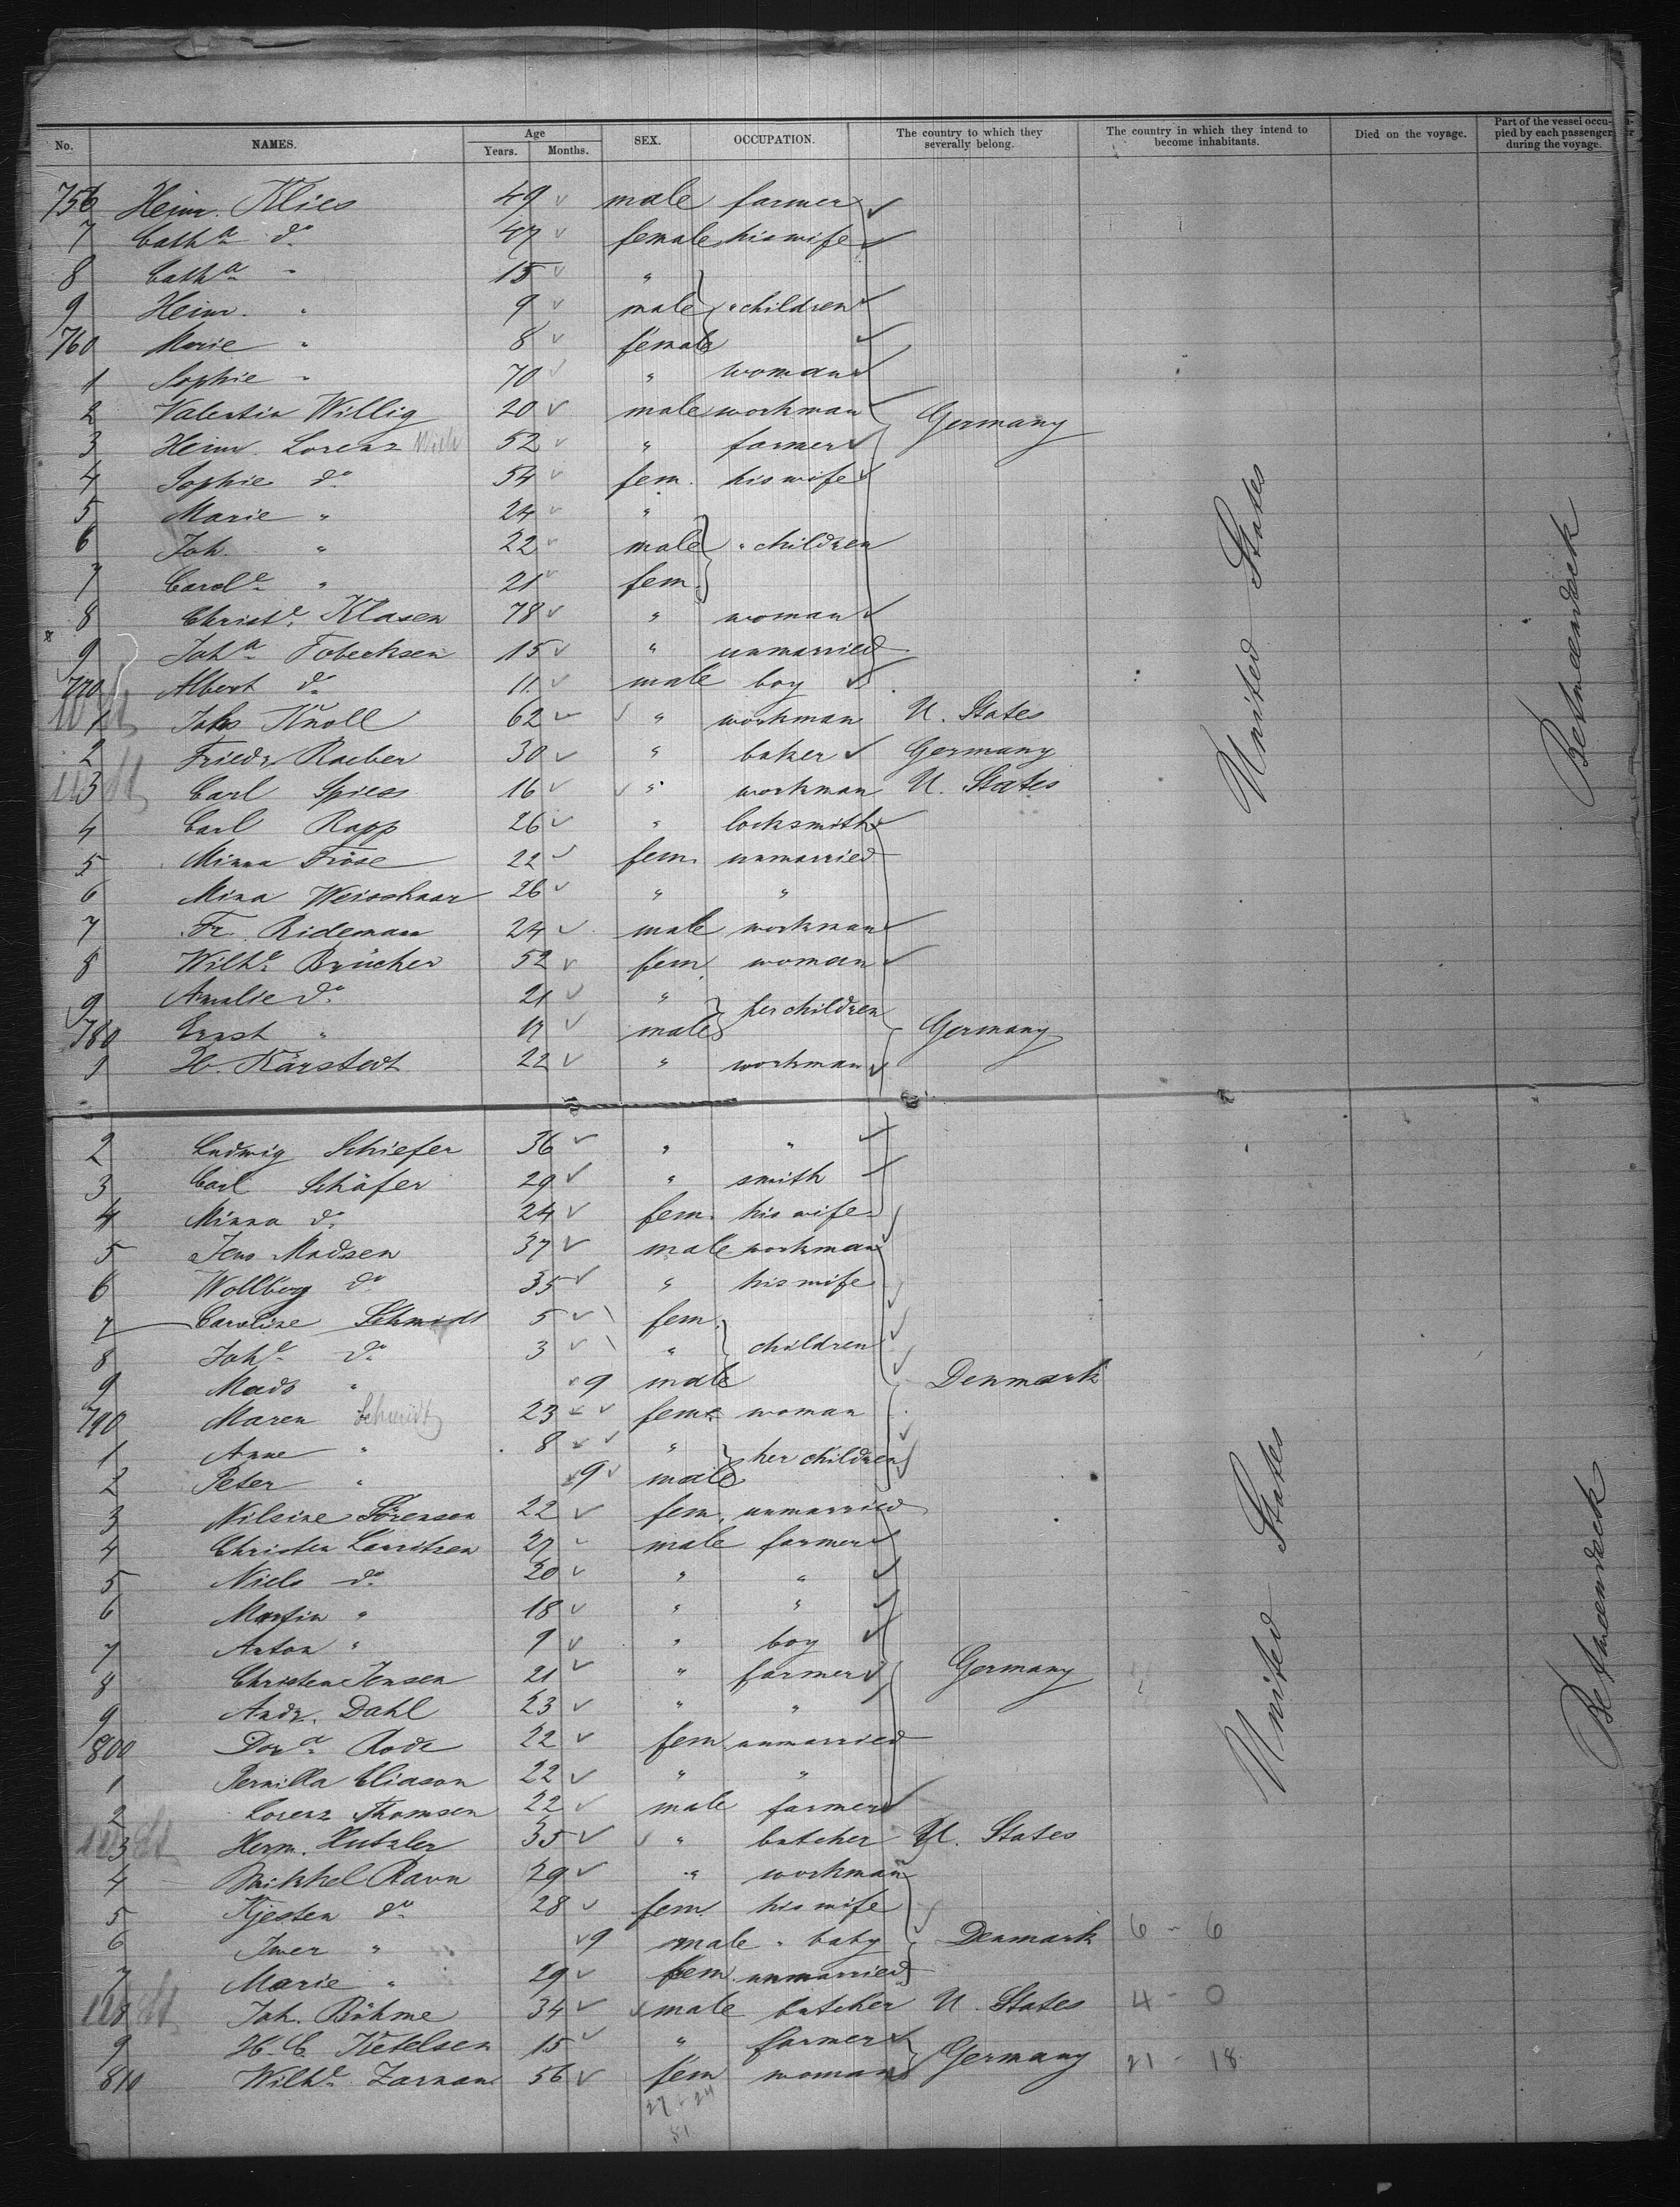 No. NAMES. Age Years. Months. SEX. OCCUPATION. The country to which they severally belong. The country in which they intend to become inhabitants. Died on the voyage. Part of the vessel occupied by each passenger during the voyage.
756 Heinr. Klies 49 male farmer
7 Catha do 47 female his wife
8 Catha " 15 "
9 Heinr. " 9 male " children
760 Marie " 8 female
1 Sophie " 70 " woman
2 Valentin Willig 20 male workman Germany
3 Heinr. Lorenz 52 " farmer
4 Sophie do 54 fem. his wife
5 Marie " 24 "
6 Joh. " 22 male " children
7 Carole " 21 fem.
8 Christe Klasen 78 " woman
9 Joha Tobecksen 15 " unmarried
770 Albert do 11 male boy
1 Johs Knoll 62 " workman U. States
2 Friedr. Raeber 30 " baker Germany
3 Carl Spiess 16 " workman U. States
4 Carl Rapp 26 " locksmith
5 Minna Fröse 22 fem. unmarried
6 Mina Weisshaar 26 " "
7 Fr. Rideman 24 male workman
8 Wilhe Brücher 52 fem. woman
9 Amalie do 21 " her children
780 Ernst " 17 male Germany
1 H. Kärstedt 22 " workman
United States
Betweendeck
2 Ludwig Schiefer 36 " "
3 Carl Schäfer 29 " smith
4 Minna do 24 fem. his wife
5 Jens Madsen 37 male workman
6 Wollberg do 35 " his wife
7 Caroline Schmidt 5 fem.
8 Johe do 3 " children
9 Mads " 9 male Denmark
790 Maren Schmidt 23 fem. woman
1 Anne " 8 " her children
2 Peter " 9 male
3 Nilsine Sörensen 22 fem. unmarried
4 Christen Lauritzen 27 male farmer
5 Niels do 20 " "
6 Martin " 18 " "
7 Anton " 9 " boy
8 Christen Jensen 21 " farmer Germany
9 Andr. Dahl 23 " "
800 Dora Rode 22 fem. unmarried
1 Pernilla Eliason 22 " "
2 Lorenz Thomsen 22 male farmer
3 Herm. Hutzler 35 " butcher U. States
4 Mikkel Ravn 29 " workman
5 Kjesten do 28 fem. his wife
6 Iwer " 9 male " baby Denmark 6 - 6
7 Marie " 29 fem. unmarried
8 Joh. Böhme 34 male butcher U. States 4 - 0
9 H. C. Ketelsen 15 " farmer
810 Wilhe Zarnan 56 fem woman Germany 21 - 18
27 - 24
51
United States
Betweendeck